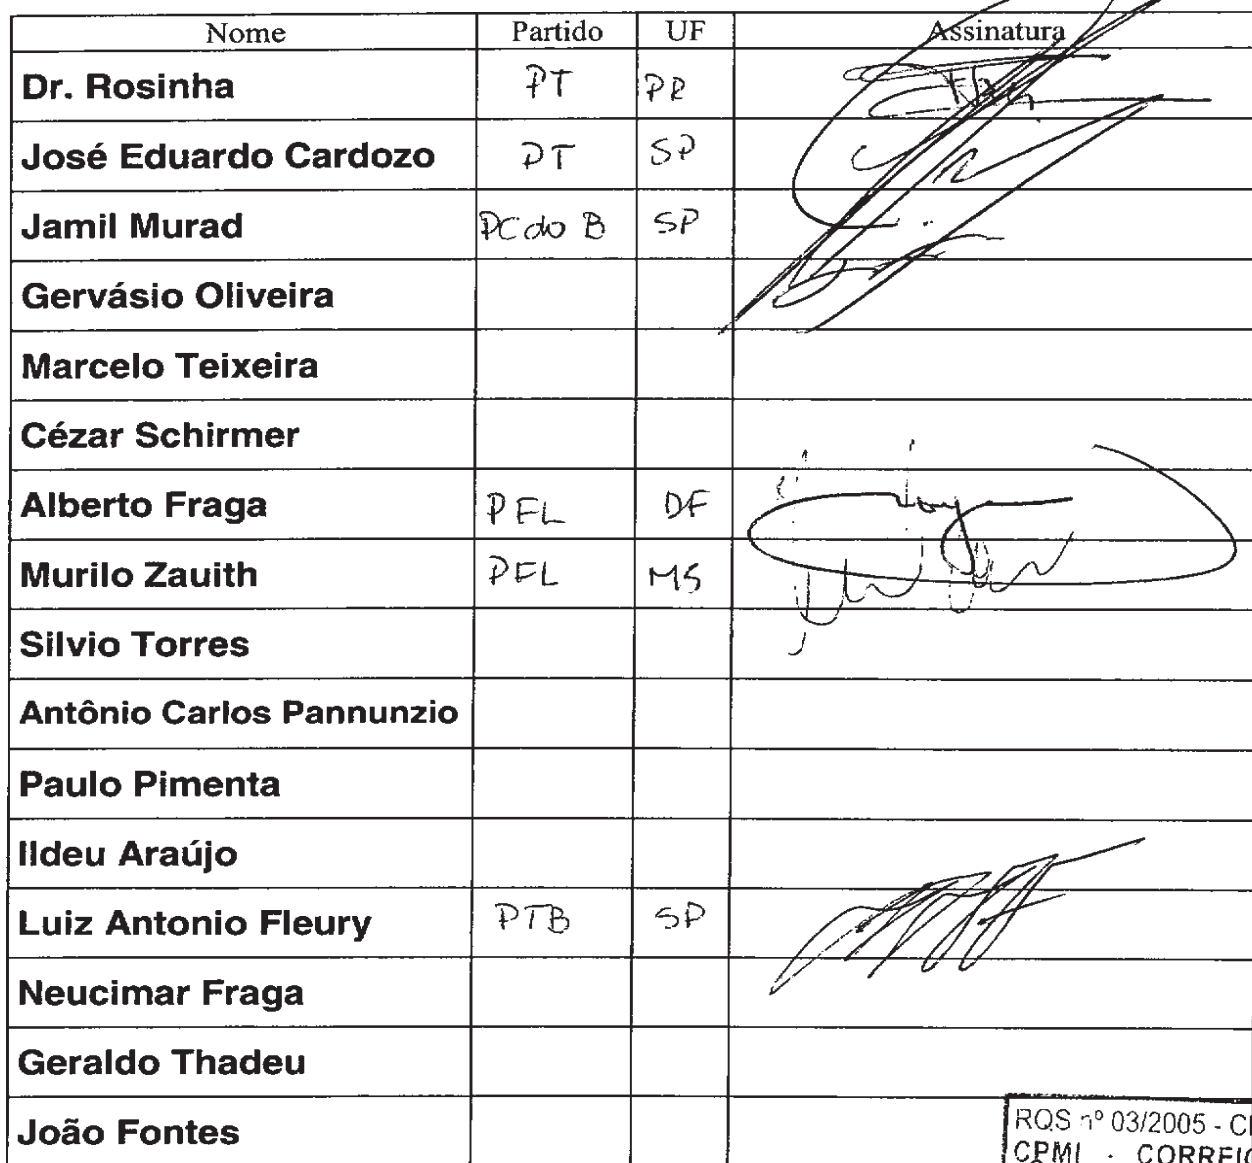 Nome Partido UF Assinatura
Dr. Rosinha PT PR
José Eduardo Cardozo PT SP
Jamil Murad PC do B SP
Gervásio Oliveira
Marcelo Teixeira
Cézar Schirmer
Alberto Fraga PFL DF
Murilo Zauith PFL MS
Silvio Torres
Antônio Carlos Pannunzio
Paulo Pimenta
Ildeu Araújo
Luiz Antonio Fleury PTB SP
Neucimar Fraga
Geraldo Thadeu
João Fontes
RQS nº 03/2005 - C
CPMI - CORREIO